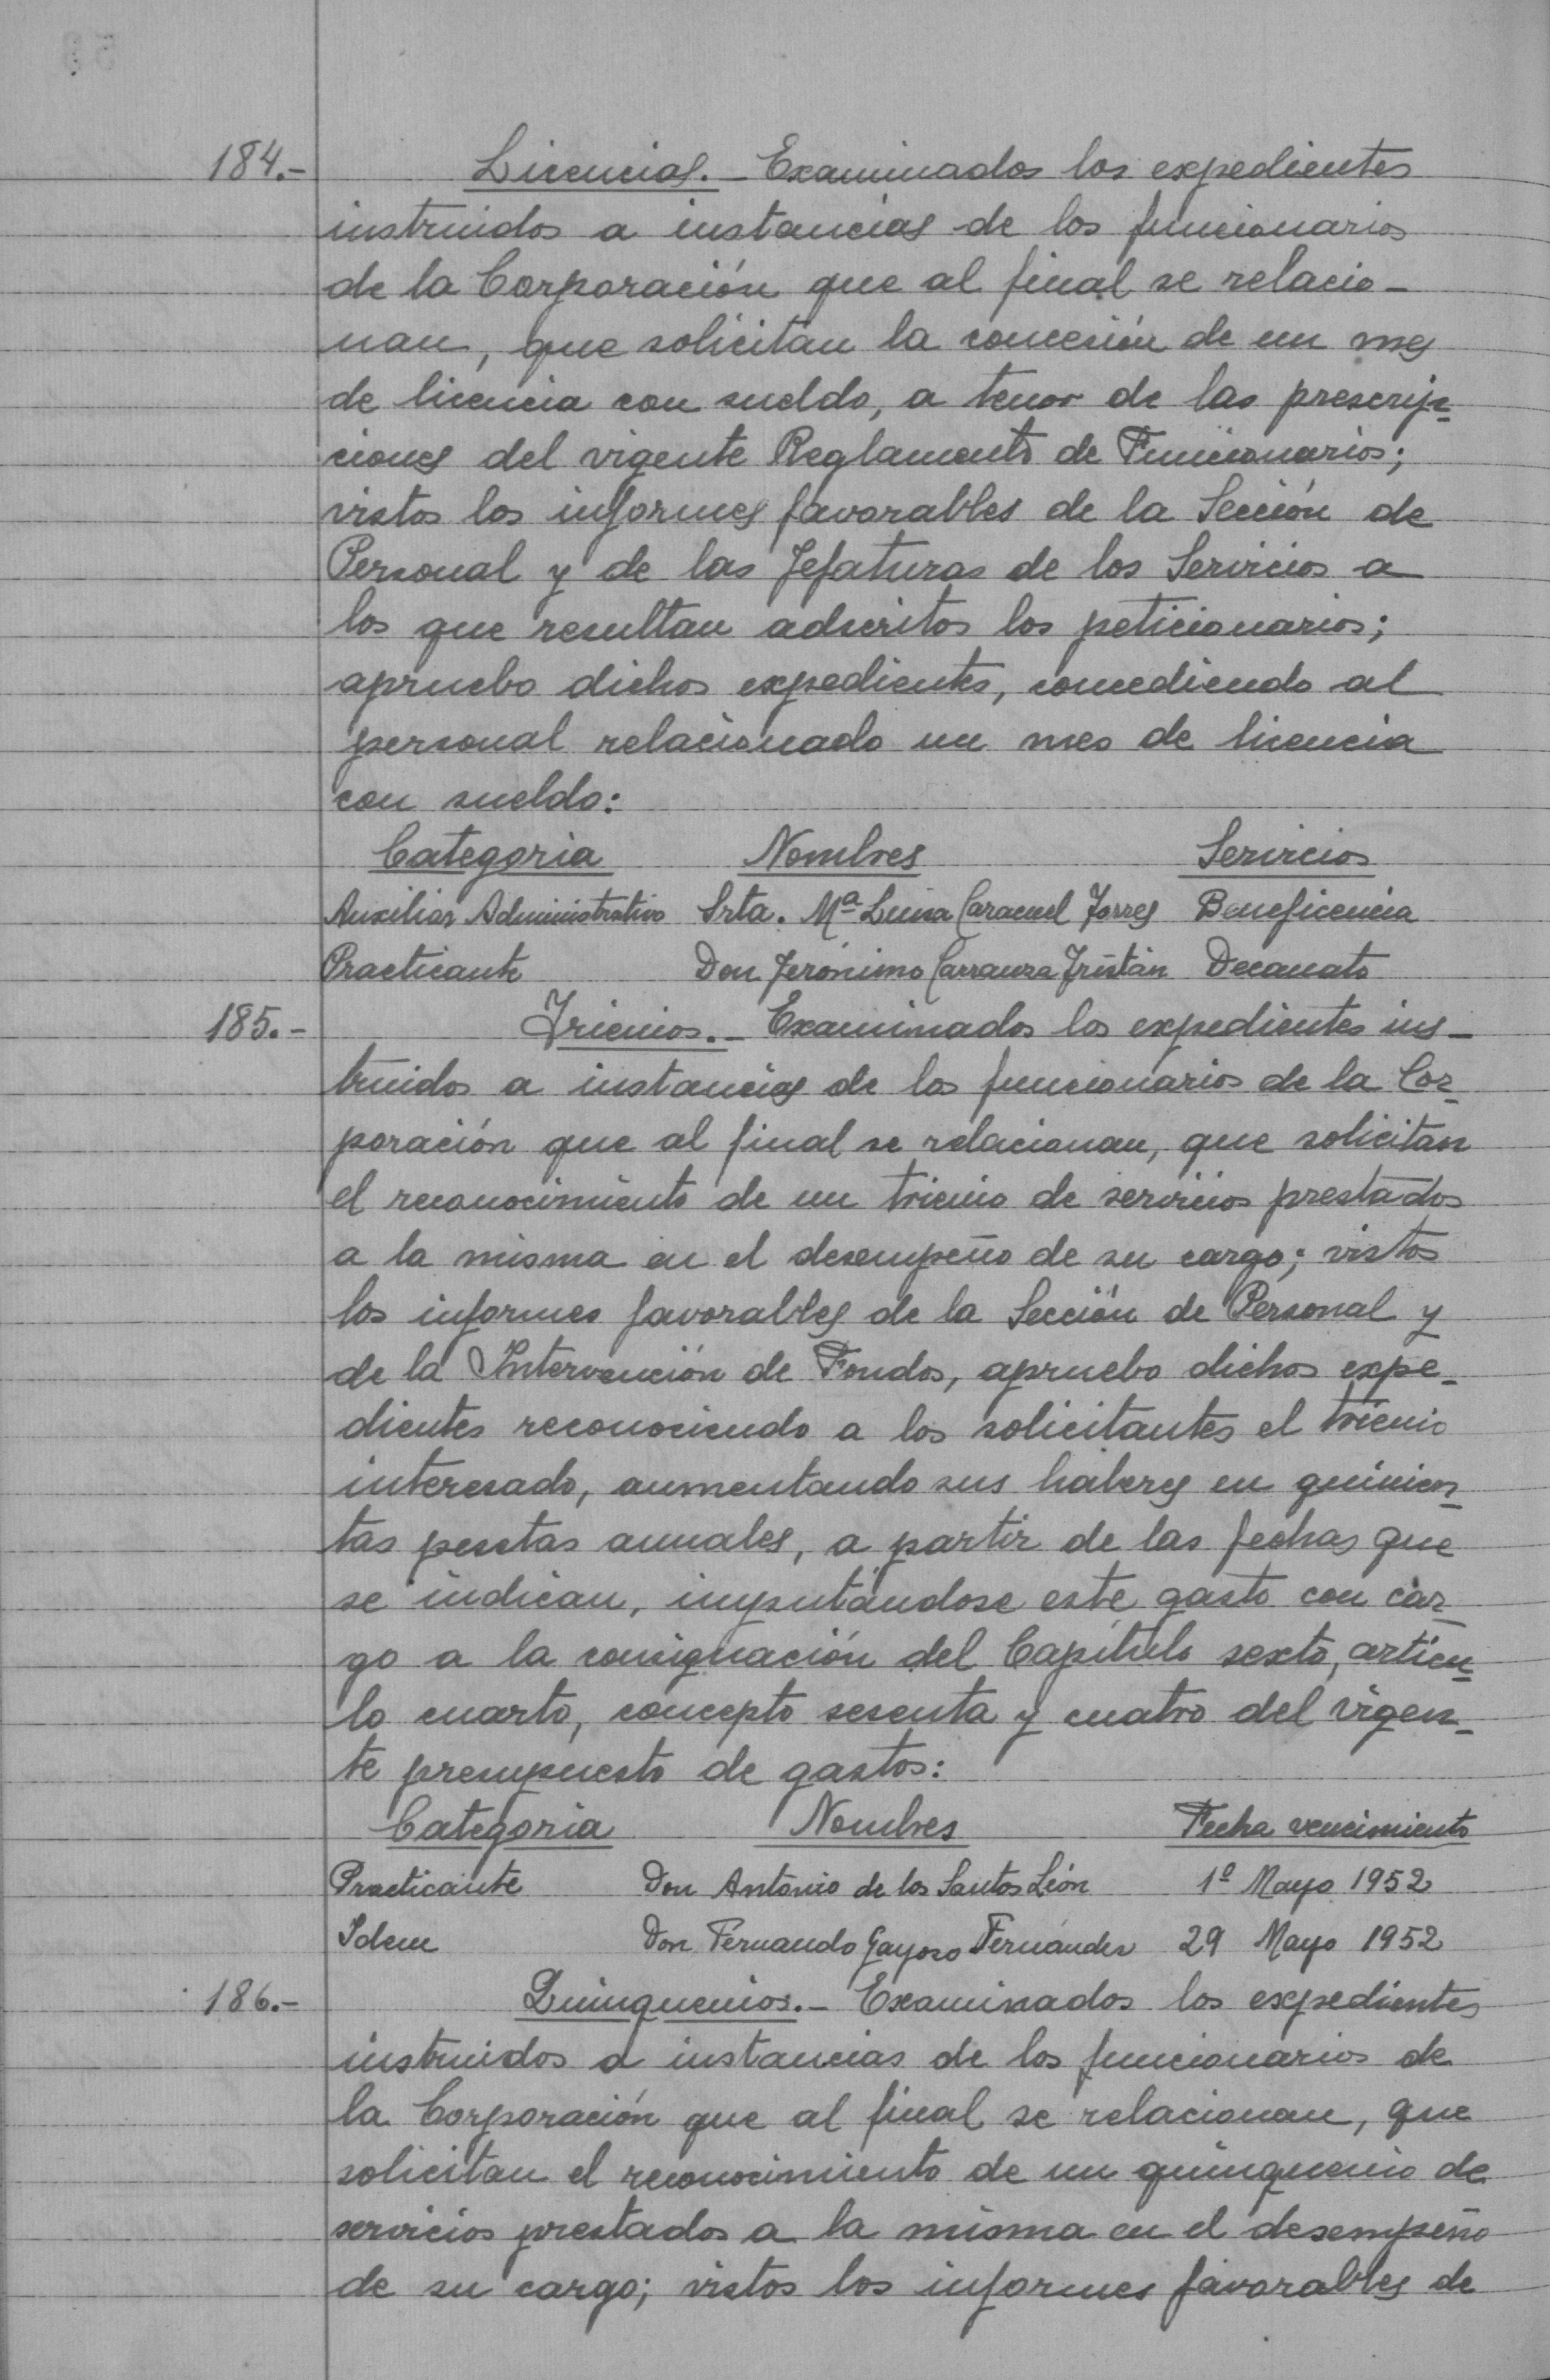 184.- Licencias.- Examinados los expedientes
instruidos a instancias de los funcionarios
de la Corporación que al final se relacio-
nan, que solicitan la concesión de un mes
de licencia con sueldo, a tenor de las prescrip-
ciones del vigente Reglamento de Funcionarios;
vistos los informes favorables de la Sección de
Personal y de las Jefaturas de los Servicios a
los que resultan adscritos los peticionarios;
apruebo dichos expedientes, concediendo al
personal relacionado un mes de licencia
con sueldo:
Categoria Nombres Servicios
Auxiliar Administrativo Srta. Mª Luisa Caracuel Torres Beneficencia
Practicante Don Jerónimo Carranza Tristán Decanato
185.- Trienios.- Examinados los expedientes ins-
truidos a instancias de los funcionarios de la Cor-
poración que al final se relacionan, que solicitan
el reconocimiento de un trienio de servicios prestados
a la misma en el desempeño de su cargo; vistos
los informes favorables de la Sección de Personal y
de la Intervención de Fondos, apruebo dichos expe-
dientes reconociendo a los solicitantes el trienio
interesado, aumentando sus haberes en quinien-
tas pesetas anuales, a partir de las fechas que
se indican, imputándose este gasto con car-
go a la consignación del Capítulo sexto, artícu-
lo cuarto, concepto sesenta y cuatro del vigen-
te presupuesto de gastos:
Categoria Nombres Fecha vencimiento
Practicante Don Antonio de los Santos León 1º Mayo 1952
Idem Don Fernando Gayoso Fernández 29 Mayo 1952
186.- Quinquenios.- Examinados los expedientes
instruidos a instancias de los funcionarios de
la Corporación que al final se relacionan, que
solicitan el reconocimiento de un quinquenio de
servicios prestados a la misma en el desempeño
de su cargo; vistos los informes favorables de